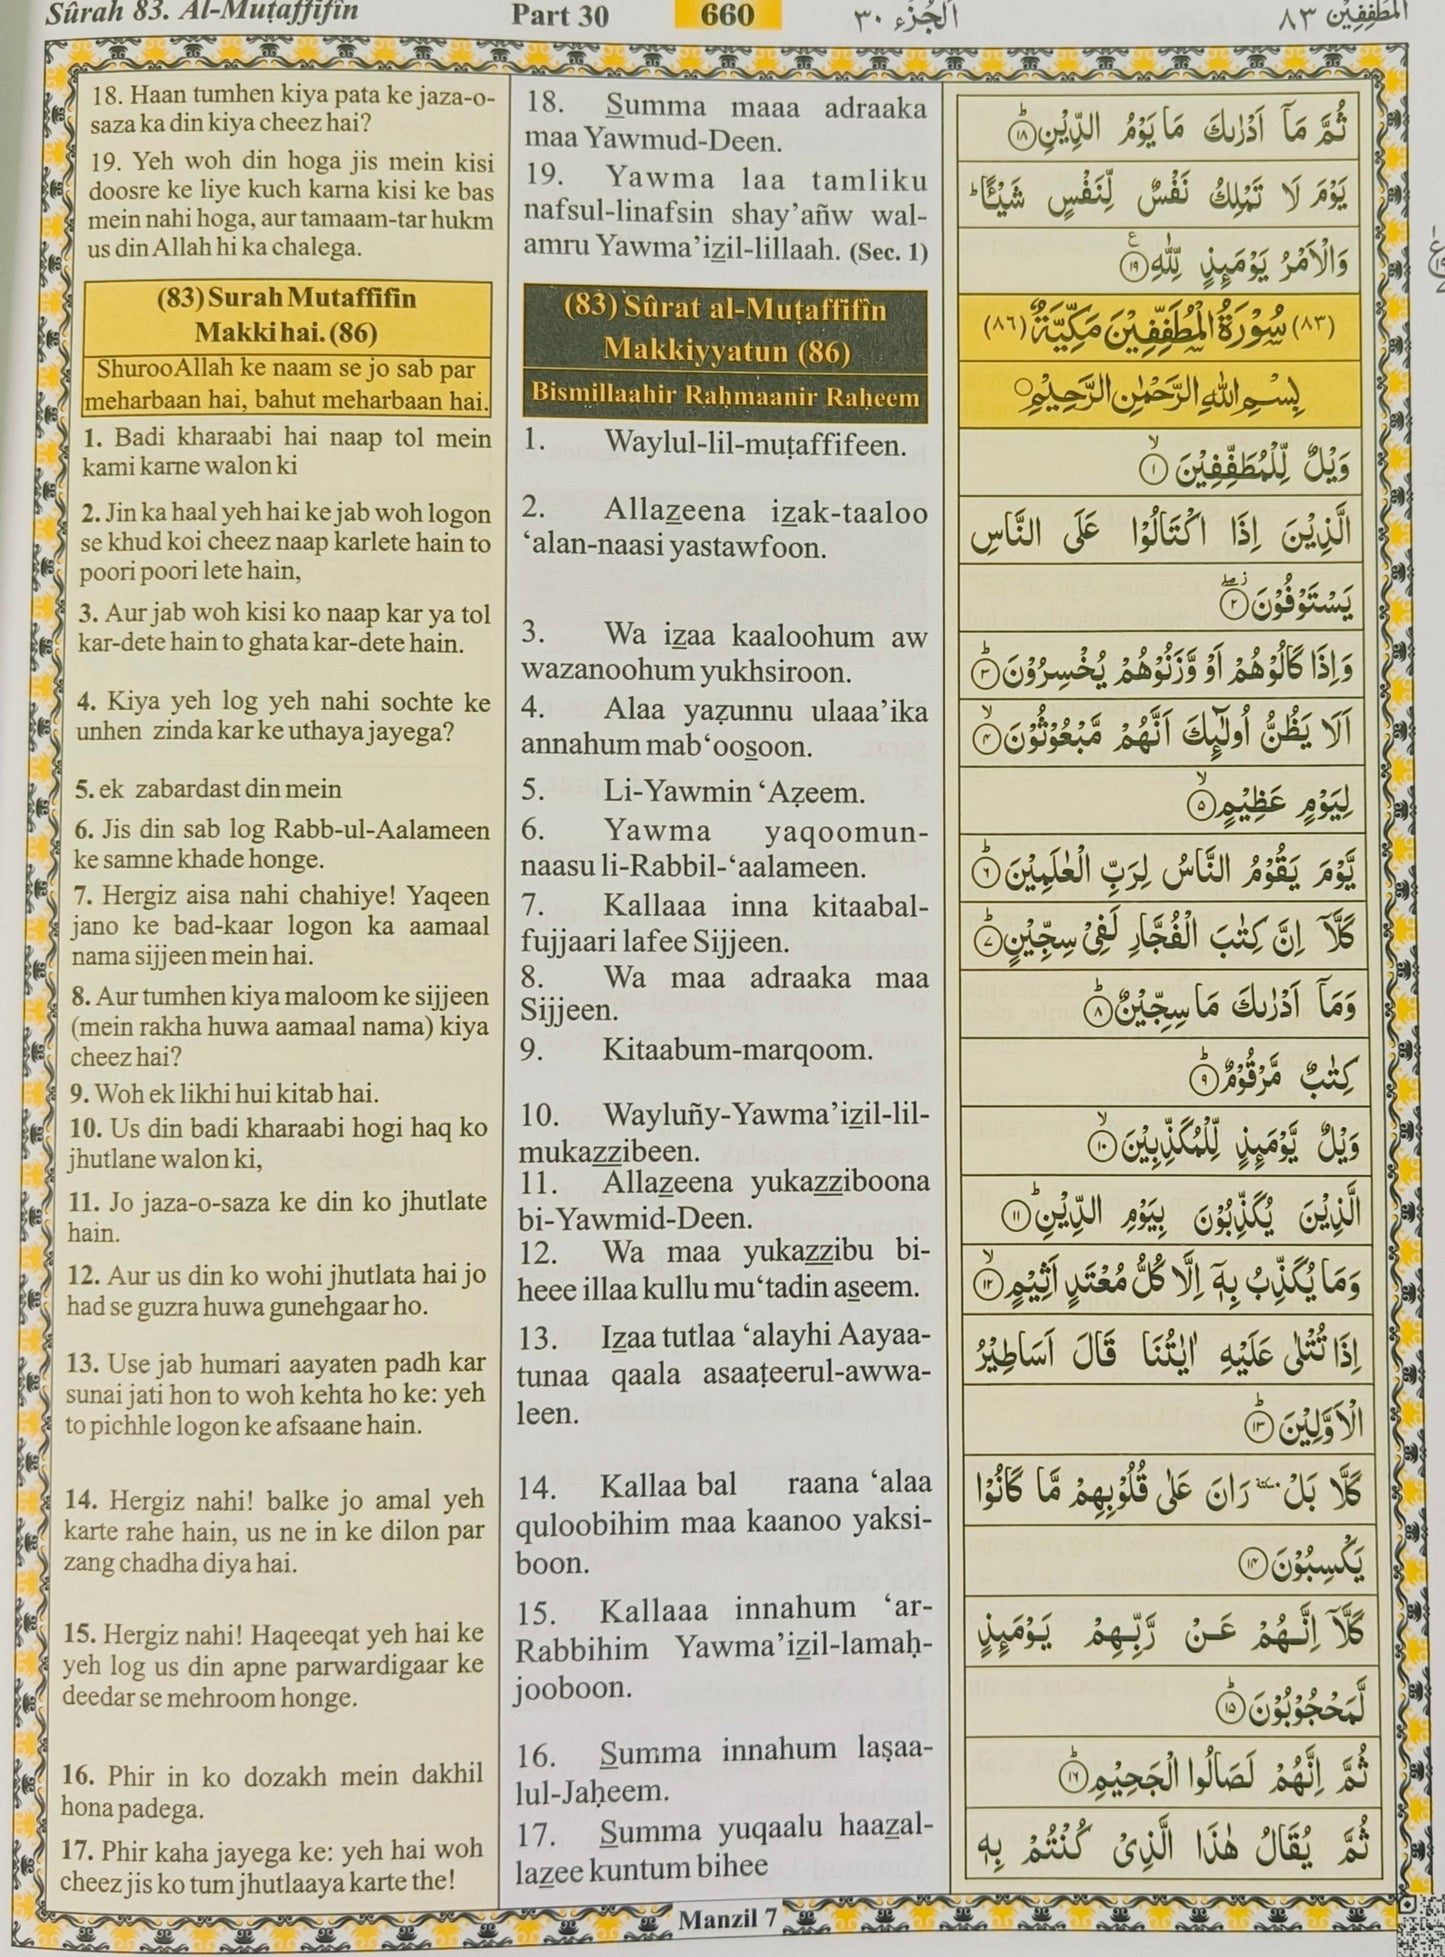 Sûrah 83. Al-Muṭaffifîn
Part 30
660
الجُزء ٣٠
المُطَفِّفِيْن ٨٣
18. Haan tumhen kiya pata ke jaza-o-
saza ka din kiya cheez hai?
19. Yeh woh din hoga jis mein kisi
doosre ke liye kuch karna kisi ke bas
mein nahi hoga, aur tamaam-tar hukm
us din Allah hi ka chalega.
(83) Surah Mutaffifin
Makki hai. (86)
Shuroo Allah ke naam se jo sab par
meharbaan hai, bahut meharbaan hai.
1. Badi kharaabi hai naap tol mein
kami karne walon ki
2. Jin ka haal yeh hai ke jab woh logon
se khud koi cheez naap karlete hain to
poori poori lete hain,
3. Aur jab woh kisi ko naap kar ya tol
kar-dete hain to ghata kar-dete hain.
4. Kiya yeh log yeh nahi sochte ke
unhen zinda kar ke uthaya jayega?
5. ek zabardast din mein
6. Jis din sab log Rabb-ul-Aalameen
ke samne khade honge.
7. Hergiz aisa nahi chahiye! Yaqeen
jano ke bad-kaar logon ka aamaal
nama sijjeen mein hai.
8. Aur tumhen kiya maloom ke sijjeen
(mein rakha huwa aamaal nama) kiya
cheez hai?
9. Woh ek likhi hui kitab hai.
10. Us din badi kharaabi hogi haq ko
jhutlane walon ki,
11. Jo jaza-o-saza ke din ko jhutlate
hain.
12. Aur us din ko wohi jhutlata hai jo
had se guzra huwa gunehgaar ho.
13. Use jab humari aayaten padh kar
sunai jati hon to woh kehta ho ke: yeh
to pichhle logon ke afsaane hain.
14. Hergiz nahi! balke jo amal yeh
karte rahe hain, us ne in ke dilon par
zang chadha diya hai.
15. Hergiz nahi! Haqeeqat yeh hai ke
yeh log us din apne parwardigaar ke
deedar se mehroom honge.
16. Phir in ko dozakh mein dakhil
hona padega.
17. Phir kaha jayega ke: yeh hai woh
cheez jis ko tum jhutlaaya karte the!
18. Summa maaa adraaka
maa Yawmud-Deen.
19. Yawma laa tamliku
nafsul-linafsin shay’añw wal-
amru Yawma’izil-lillaah. (Sec. 1)
(83) Sûrat al-Muṭaffifîn
Makkiyyatun (86)
Bismillaahir Raḥmaanir Raḥeem
1. Waylul-lil-muṭaffifeen.
2. Allazeena izak-taaloo
‘alan-naasi yastawfoon.
3. Wa izaa kaaloohum aw
wazanoohum yukhsiroon.
4. Alaa yaẓunnu ulaaa’ika
annahum mab‘oosoon.
5. Li-Yawmin ‘Aẓeem.
6. Yawma yaqoomun-
naasu li-Rabbil-‘aalameen.
7. Kallaaa inna kitaabal-
fujjaari lafee Sijjeen.
8. Wa maa adraaka maa
Sijjeen.
9. Kitaabum-marqoom.
10. Wayluñy-Yawma’izil-lil-
mukazzibeen.
11. Allazeena yukazziboona
bi-Yawmid-Deen.
12. Wa maa yukazzibu bi-
heee illaa kullu mu‘tadin aseem.
13. Izaa tutlaa ‘alayhi Aayaa-
tunaa qaala asaaṭeerul-awwa-
leen.
14. Kallaa bal raana ‘alaa
quloobihim maa kaanoo yaksi-
boon.
15. Kallaaa innahum ‘ar-
Rabbihim Yawma’izil-lamaḥ-
jooboon.
16. Summa innahum laṣaa-
lul-Jaḥeem.
17. Summa yuqaalu haazal-
lazee kuntum bihee
ثُمَّ مَآ اَدْرٰىكَ مَا يَوْمُ الدِّيْنِ ؕ﴿۱۸﴾
يَوْمَ لَا تَمْلِكُ نَفْسٌ لِّنَفْسٍ شَيْـًٔا ؕ
وَالْاَمْرُ يَوْمَىِٕذٍ لِّلّٰهِ ﴿۱۹﴾
(٨٣) سُوْرَةُ الْمُطَفِّفِيْنَ مَكِّيَّةٌ (٨٦)
بِسْمِ اللّٰهِ الرَّحْمٰنِ الرَّحِيْمِ
وَيْلٌ لِّلْمُطَفِّفِيْنَ ۙ﴿۱﴾
الَّذِيْنَ اِذَا اكْتَالُوْا عَلَى النَّاسِ
يَسْتَوْفُوْنَ ۖ﴿۲﴾
وَاِذَا كَالُوْهُمْ اَوْ وَّزَنُوْهُمْ يُخْسِرُوْنَ ؕ﴿۳﴾
اَلَا يَظُنُّ اُولٰٓىِٕكَ اَنَّهُمْ مَّبْعُوْثُوْنَ ۙ﴿۴﴾
لِيَوْمٍ عَظِيْمٍ ۙ﴿۵﴾
يَّوْمَ يَقُوْمُ النَّاسُ لِرَبِّ الْعٰلَمِيْنَ ؕ﴿۶﴾
كَلَّاۤ اِنَّ كِتٰبَ الْفُجَّارِ لَفِيْ سِجِّيْنٍ ؕ﴿۷﴾
وَمَاۤ اَدْرٰىكَ مَا سِجِّيْنٌ ؕ﴿۸﴾
كِتٰبٌ مَّرْقُوْمٌ ؕ﴿۹﴾
وَيْلٌ يَّوْمَىِٕذٍ لِّلْمُكَذِّبِيْنَ ۙ﴿۱۰﴾
الَّذِيْنَ يُكَذِّبُوْنَ بِيَوْمِ الدِّيْنِ ؕ﴿۱۱﴾
وَمَا يُكَذِّبُ بِهٖۤ اِلَّا كُلُّ مُعْتَدٍ اَثِيْمٍ ۙ﴿۱۲﴾
اِذَا تُتْلٰى عَلَيْهِ اٰيٰتُنَا قَالَ اَسَاطِيْرُ
الْاَوَّلِيْنَ ؕ﴿۱۳﴾
كَلَّا بَلْ ٚ رَانَ عَلٰى قُلُوْبِهِمْ مَّا كَانُوْا
يَكْسِبُوْنَ ﴿۱۴﴾
كَلَّاۤ اِنَّهُمْ عَنْ رَّبِّهِمْ يَوْمَىِٕذٍ
لَّمَحْجُوْبُوْنَ ؕ﴿۱۵﴾
ثُمَّ اِنَّهُمْ لَصَالُوا الْجَحِيْمِ ؕ﴿۱۶﴾
ثُمَّ يُقَالُ هٰذَا الَّذِيْ كُنْتُمْ بِهٖ
Manzil 7